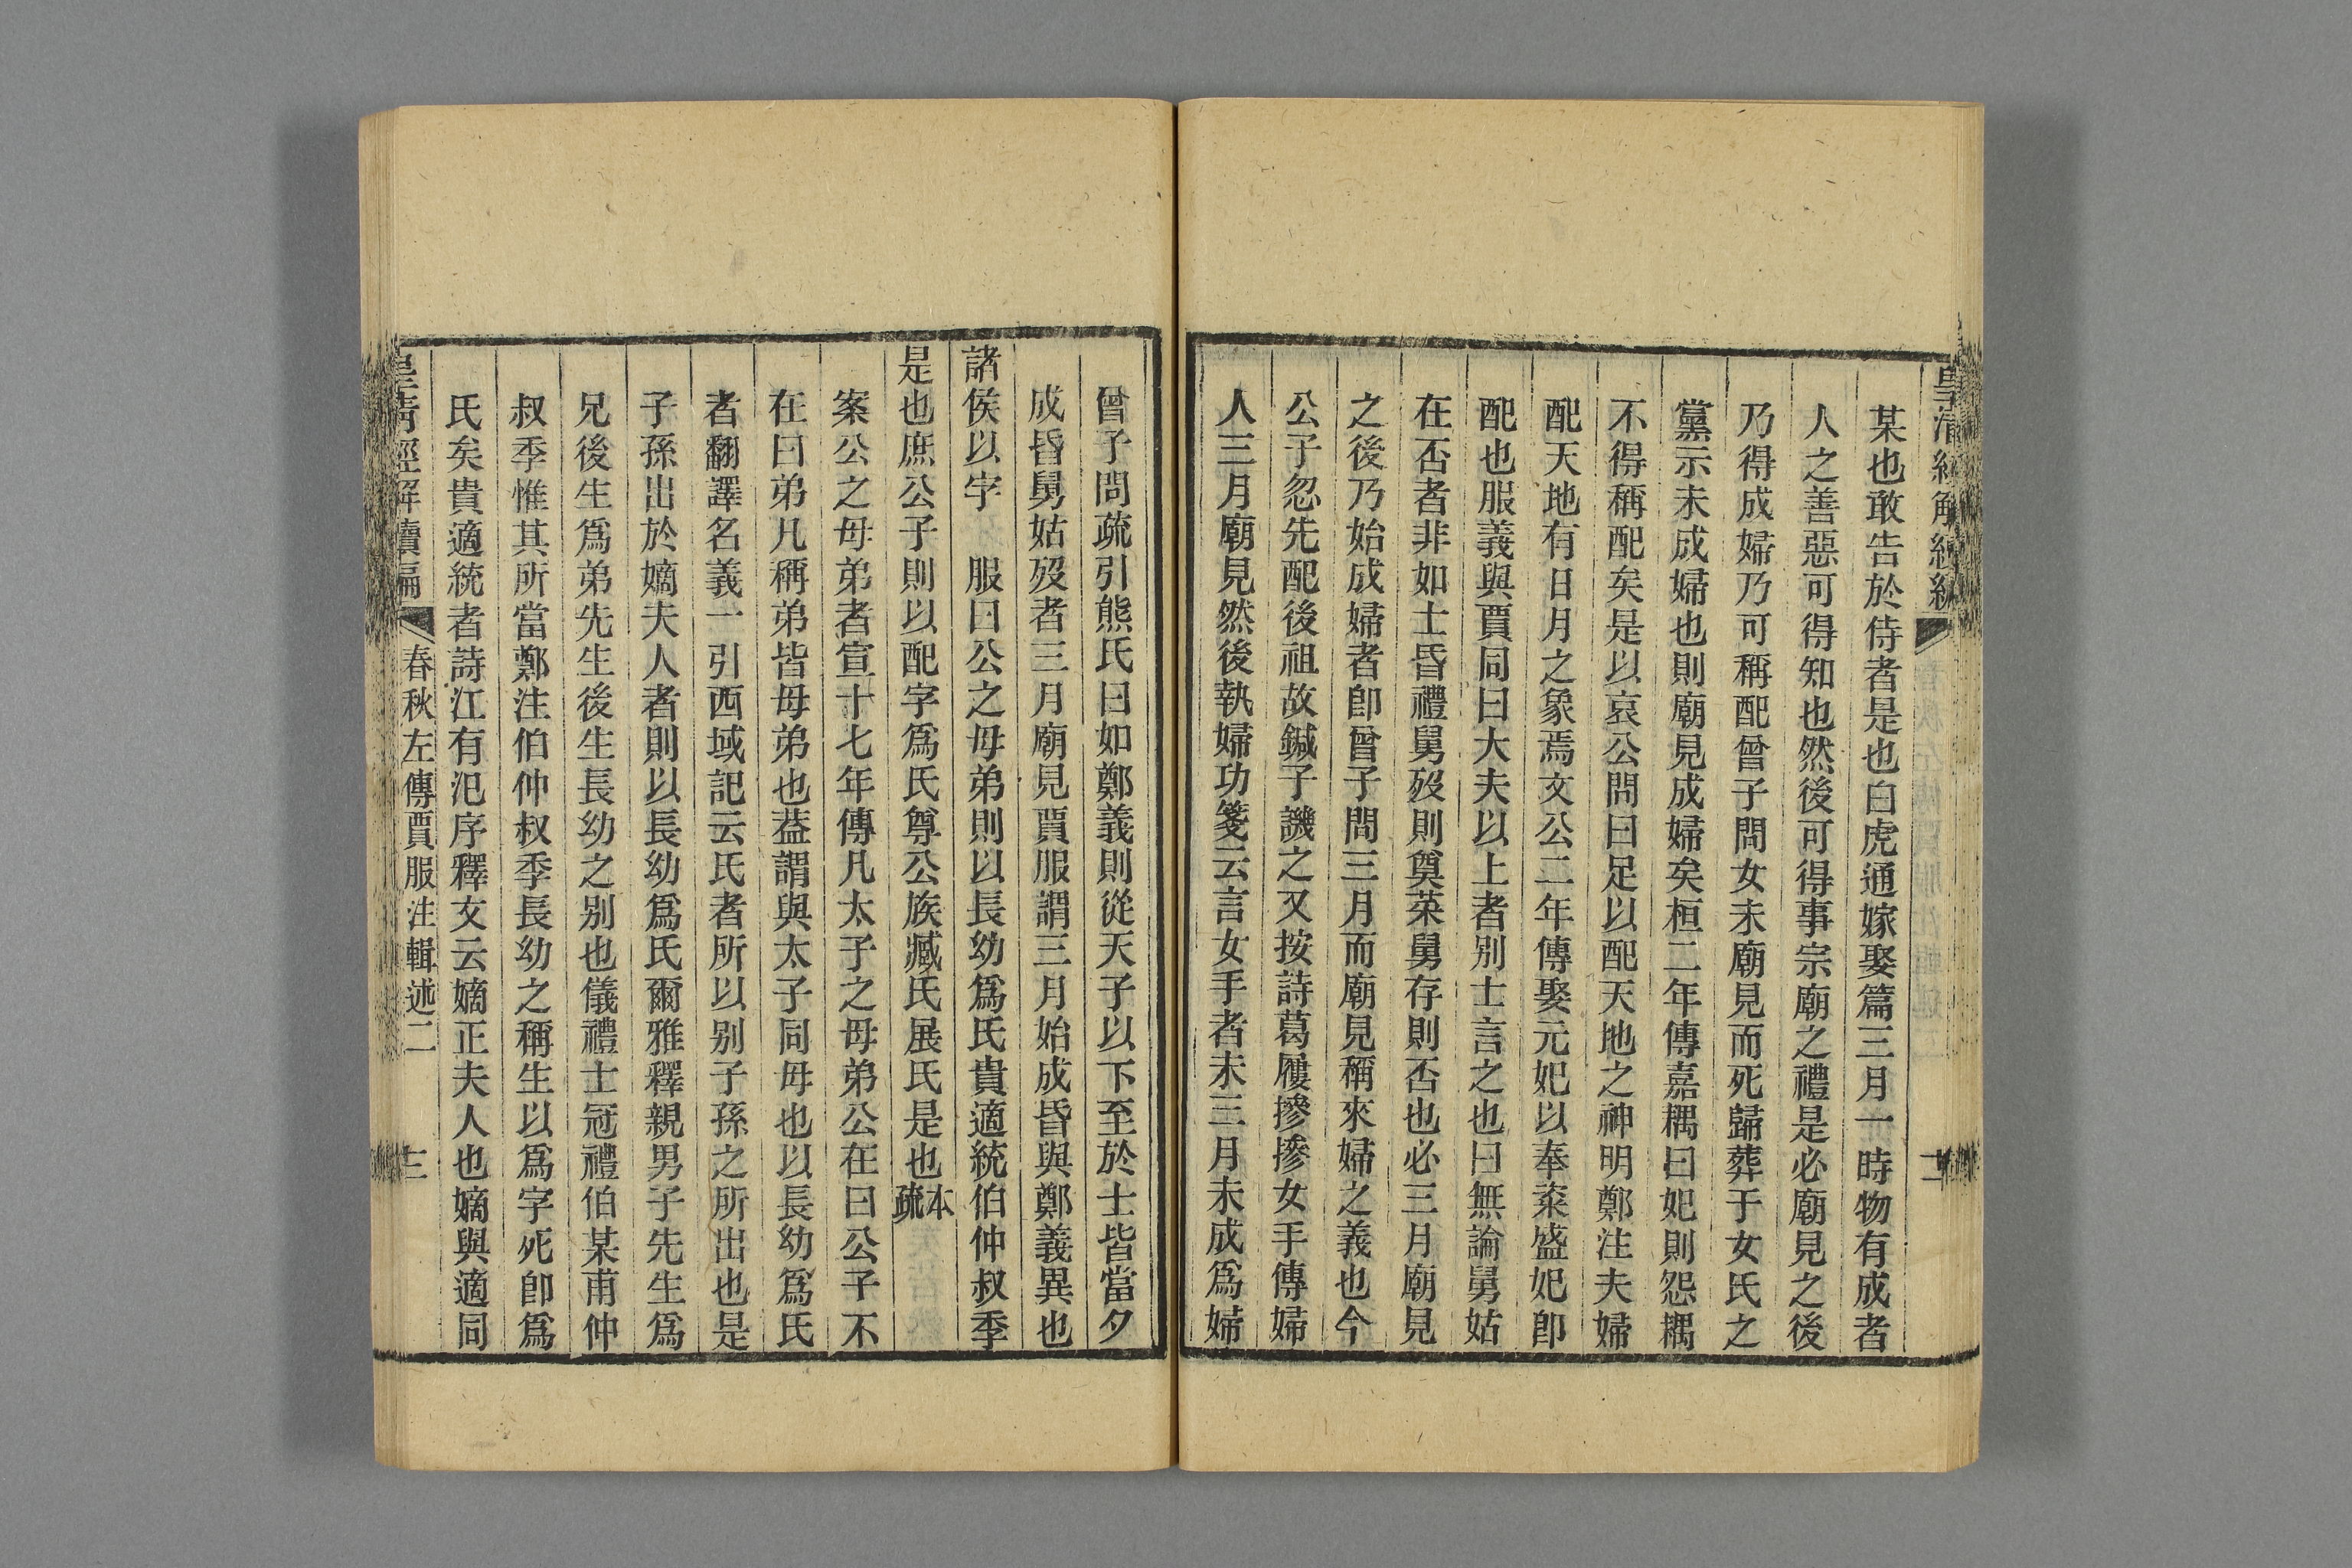 皇清經解續編
某也敢告於侍者是也白虎通嫁娶篇三月一時物有成者
人之善惡可得知也然後可得事宗廟之禮是必廟見之後
乃得成婦乃可稱配曾子問女未廟見而死歸葬于女氏之
黨示未成婦也則廟見成婦矣桓二年傳嘉耦曰妃則怨耦
不得稱配矣是以哀公問曰足以配天地之神明鄭注夫婦
配天地有日月之象焉文公二年傳娶元妃以奉粢盛妃卽
配也服義與賈同曰大夫以上者別士言之也曰無論舅姑
在否者非如士昏禮舅歿則奠菜舅存則否也必三月廟見
之後乃始成婦者卽曾子問三月而廟見稱來婦之義也今
公子忽先配後祖故鍼子譏之又按詩葛屨摻摻女手傳婦
人三月廟見然後執婦功箋云言女手者未三月未成爲婦
曾子問疏引熊氏曰如鄭義則從天子以下至於士皆當夕
成昏舅姑歿者三月廟見賈服謂三月始成昏與鄭義異也
諸侯以字 服曰公之母弟則以長幼爲氏貴適統伯仲叔季
是也庶公子則以配字爲氏尊公族臧氏展氏是也本疏
案公之母弟者宣十七年傳凡太子之母弟公在曰公子不
在曰弟凡稱弟皆母弟也葢謂與太子同母也以長幼爲氏
者翻譯名義一引西域記云氏者所以別子孫之所出也是
子孫出於嫡夫人者則以長幼爲氏爾雅釋親男子先生爲
兄後生爲弟先生後生長幼之別也儀禮士冠禮伯某甫仲
叔季惟其所當鄭注伯仲叔季長幼之稱生以爲字死卽爲
氏矣貴適統者詩江有汜序釋文云嫡正夫人也嫡與適同
皇清經解續編 春秋左傳賈服注輯述二